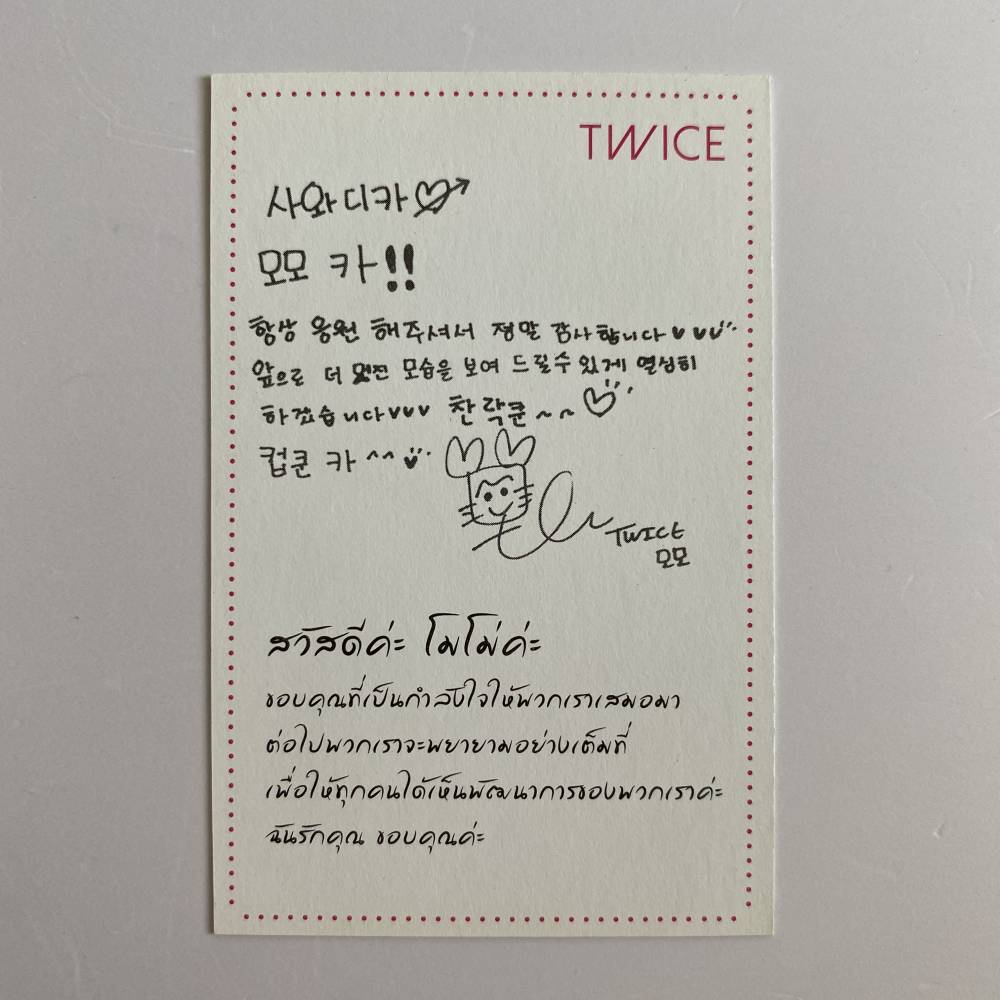 TWICE
사와디카
모모 카!!
항상 응원 해주셔서 정말 감사합니다
앞으로 더 멋진 모습을 보여 드릴수있게 열심히
하겠습니다 찬락쿤~~
컵쿤 카^^
TWICE
모모
สวัสดีค่ะ โมโม่ค่ะ
ขอบคุณที่เป็นกำลังใจให้พวกเราเสมอมา
ต่อไปพวกเราจะพยายามอย่างเต็มที่
เพื่อให้ทุกคนได้เห็นพัฒนาการของพวกเราค่ะ
ฉันรักคุณ ขอบคุณค่ะ